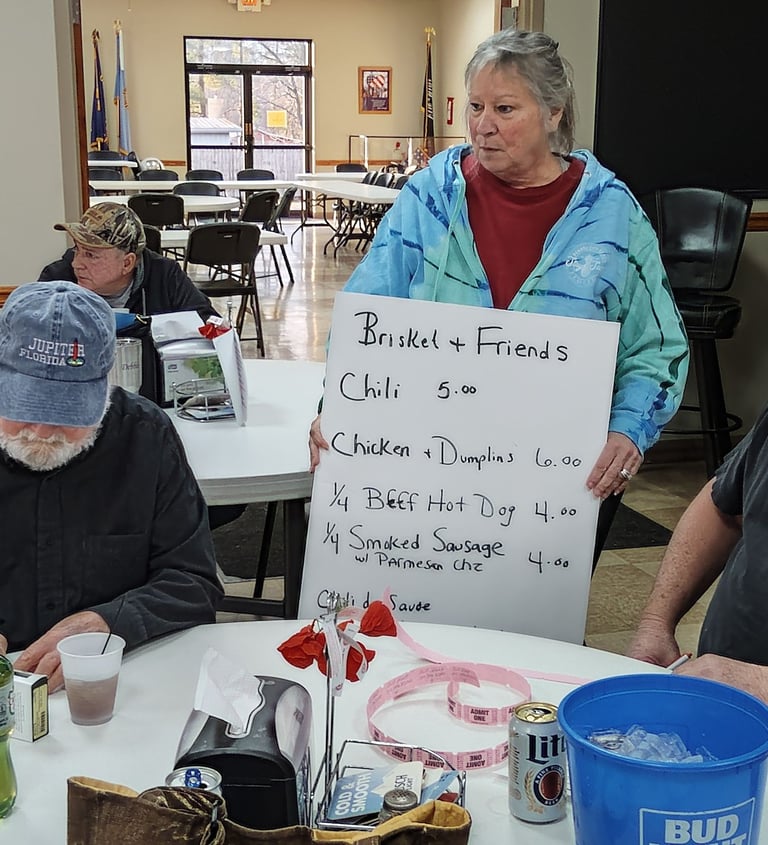 JUPITER
FLORIDA
Brisket + Friends
Chili 5.00
Chicken + Dumplins 6.00
1/4 Beef Hot Dog 4.00
1/4 Smoked Sausage
w/ Parmesan Chz 4.00
Sauce
ADMIT ONE
ADMIT ONE
Lite
COLD &
SMOOTH
BUSCH
BUD